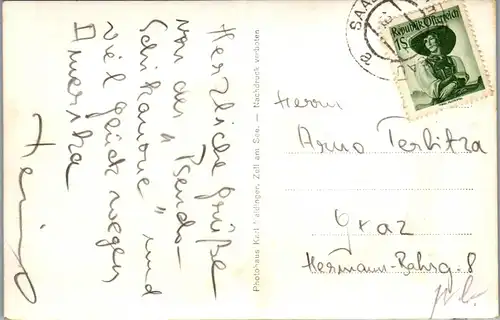 Herzliche Grüße
von der "Pseudo-
Schikanone" und
viel Glück wegen
Amerika
Heinz
Photohaus Karl Haidinger, Zell am See. — Nachdruck verboten
SAAL
Republik Österreich
1S
Herrn
Arno Terbitza
Graz
Hermann-Bahrg. 8